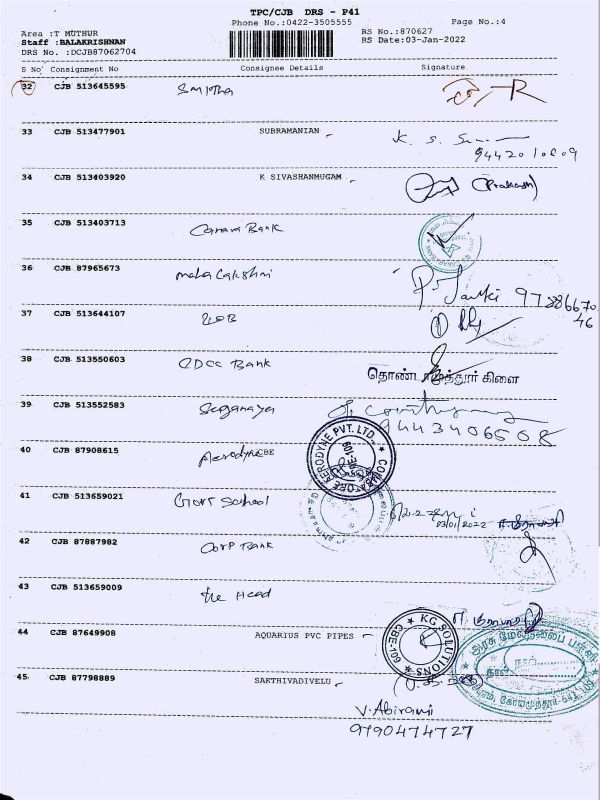 TPC/CJB DRS - P41
Phone No.:0422-3505555 Page No.:4
Area :T MUTHUR RS No.:870627
Staff :BALAKRISHNAN RS Date:03-Jan-2022
DRS No. :DCJB87062704
S No Consignment No Consignee Details Signature
32 CJB 513645595 Smitha
33 CJB 513477901 SUBRAMANIAN K. S.
34 CJB 513403920 K SIVASHANMUGAM (Prakash)
35 CJB 513403713 Canara Bank
36 CJB 87965673 maha Lakshmi P. 97886670
46
37 CJB 513644107 IOB
38 CJB 513550603 CDCC Bank கிளை
39 CJB 513552583
9443406508
40 CJB 87908615 Aerodyne CBE
COIMBATORE AERODYNE PVT. LTD.,
41 CJB 513659021 Govt School 03/01/2022
42 CJB 87887982 Corp Bank
43 CJB 513659009 the Head
44 CJB 87649908 AQUARIUS PVC PIPES
KG SOLUTIONS
அரசு மேல்நிலைப் பள்ளி
நாள்
45 CJB 87798889 SAKTHIVADIVELU
V. Abirami
9790474727